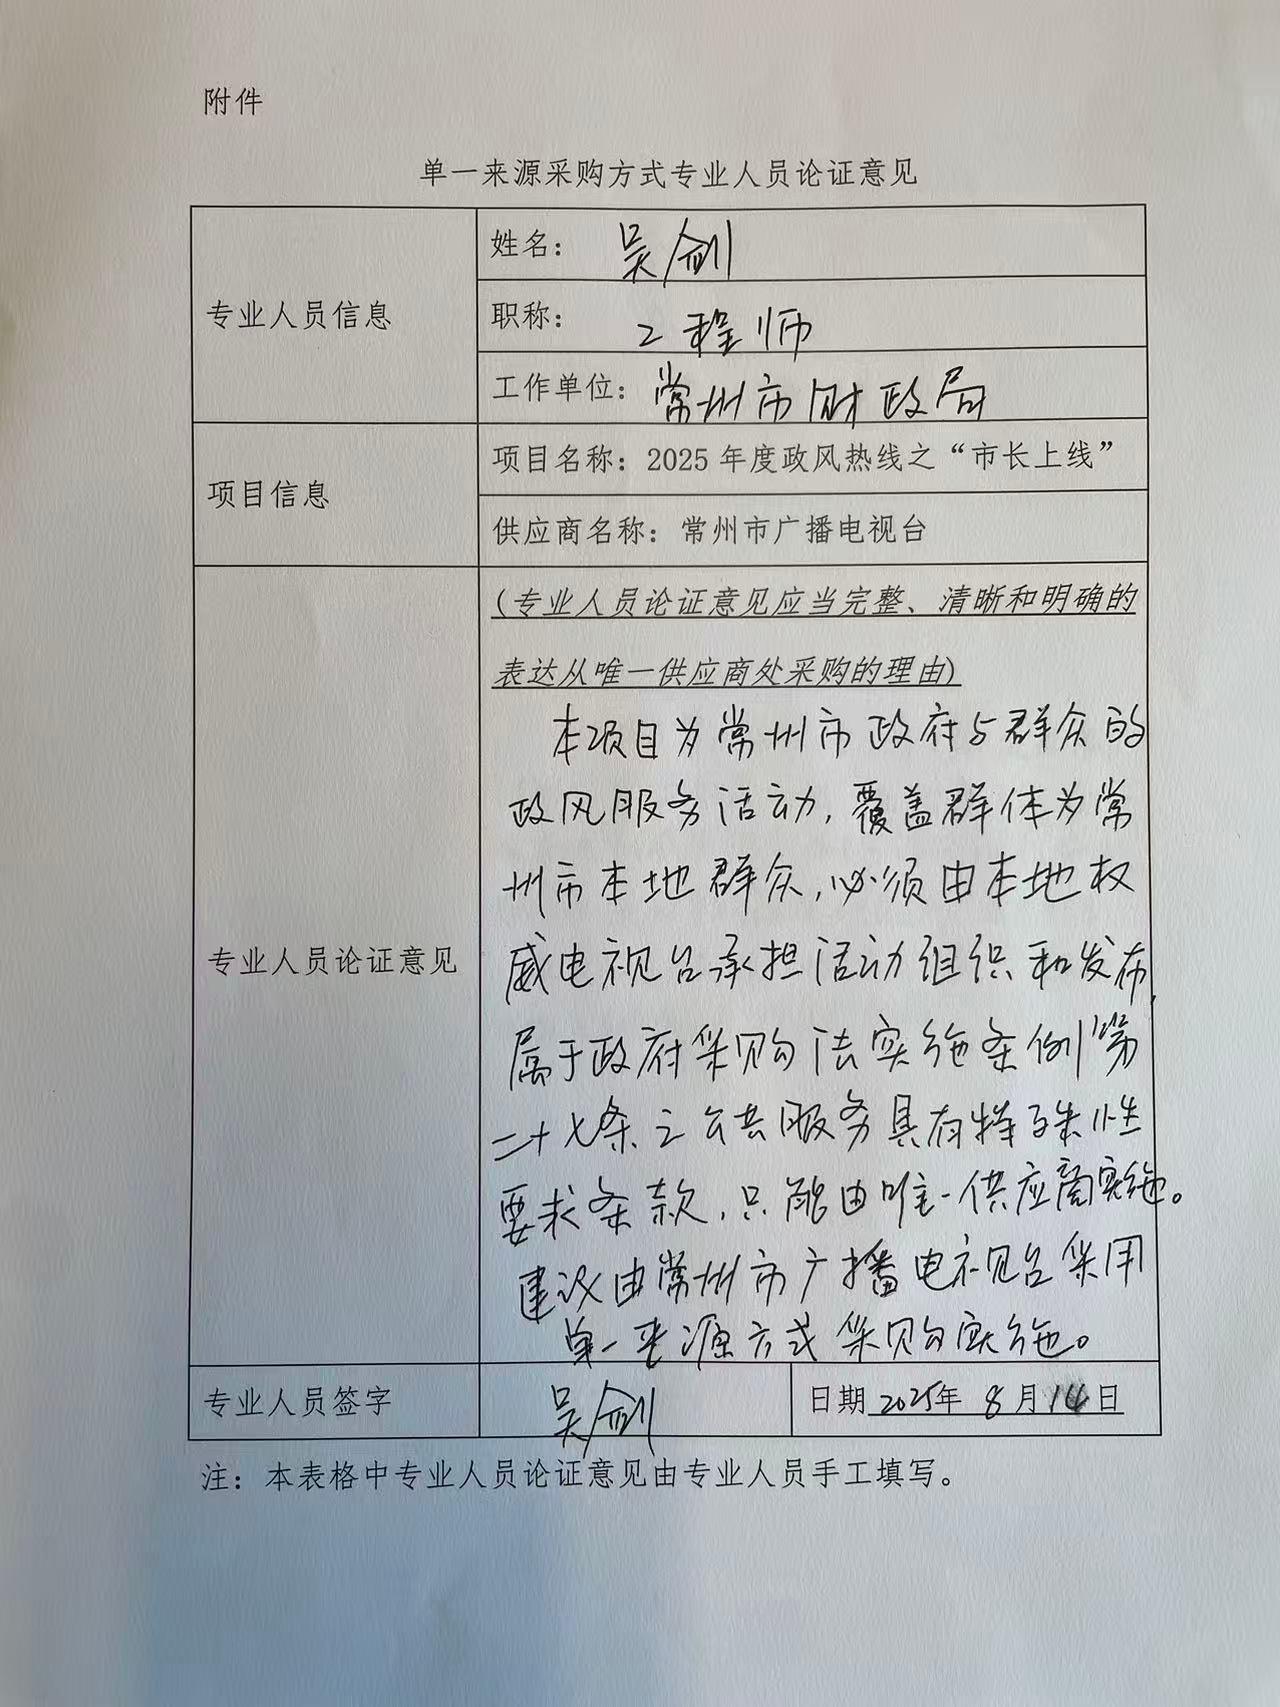 附件
单一来源采购方式专业人员论证意见
专业人员信息
姓名：吴剑
职称：工程师
工作单位：常州市财政局
项目信息
项目名称：2025年度政风热线之“市长上线”
供应商名称：常州市广播电视台
专业人员论证意见
(专业人员论证意见应当完整、清晰和明确的
表达从唯一供应商处采购的理由)
本项目为常州市政府与群众的
政风服务活动，覆盖群体为常
州市本地群众，必须由本地权
威电视台承担活动组织和发布，
属于政府采购法实施条例第
二十七条之公共服务具有特殊性
要求条款，只能由唯一供应商实施。
建议由常州市广播电视台采用
单一来源方式采购实施。
专业人员签字
吴剑
日期 2025年 8月14日
注：本表格中专业人员论证意见由专业人员手工填写。